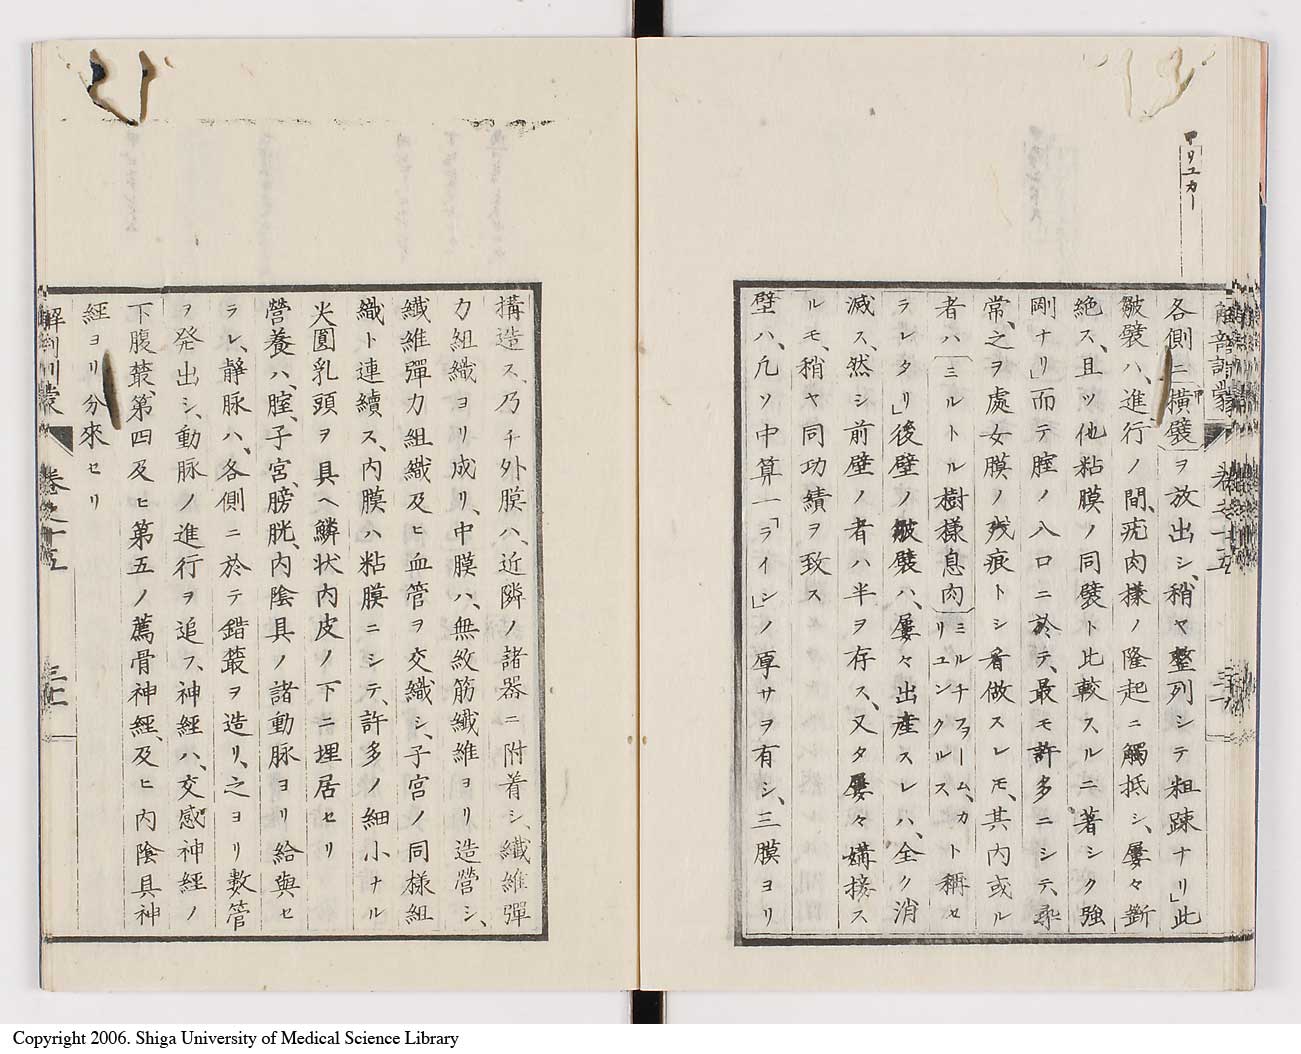 リユカー
各側ニ横襞ヲ放出シ、稍ヤ整列シテ粗踈ナリ」此
皺襞ハ、進行ノ間、疣肉様ノ隆起ニ觸抵シ、屡々斷
絶ス、且ツ他粘膜ノ同襞ト比較スルニ著シク強
剛ナリ」而テ腟ノ入口ニ於テ、最モ許多ニシテ、
常、之ヲ處女膜ノ残痕トシ看做スレモ、其内或ル
者ハミルトル樹様息肉ミルチフヲームカリユンクルスト稱セ
ラレタリ」後壁ノ皺襞ハ、屡々出産スレハ、全ク消
滅ス、然シ前壁ノ者ハ半ヲ存ス、又タ屡々媾接ス
ルモ、稍ヤ同功績ヲ致ス
壁ハ、凡ソ中算一「ライシ」ノ厚サヲ有シ、三膜ヨリ
解剖訓蒙 巻之十五
構造ス、乃チ外膜ハ、近隣ノ諸器ニ附着シ、纎維彈
力組織ヨリ成リ、中膜ハ、無紋筋纎維ヨリ造營シ、
纎維彈力組織及ヒ血管ヲ交織シ、子宮ノ同様組
織ト連續ス、内膜ハ粘膜ニシテ、許多ノ細小ナル
尖圓乳頭ヲ具ヘ鱗状内皮ノ下ニ埋居セリ
營養ハ、腟、子宮、膀胱、内陰具ノ諸動脉ヨリ給與セ
ラレ、静脉ハ、各側ニ於テ錯叢ヲ造リ、之ヨリ數管
ヲ発出シ、動脉ノ進行ヲ追フ、神經ハ、交感神經ノ
下腹叢、第四及ヒ第五ノ薦骨神經、及ヒ内陰具神
經ヨリ分來セリ
解剖訓蒙 巻之十五
Copyright 2006. Shiga University of Medical Science Library